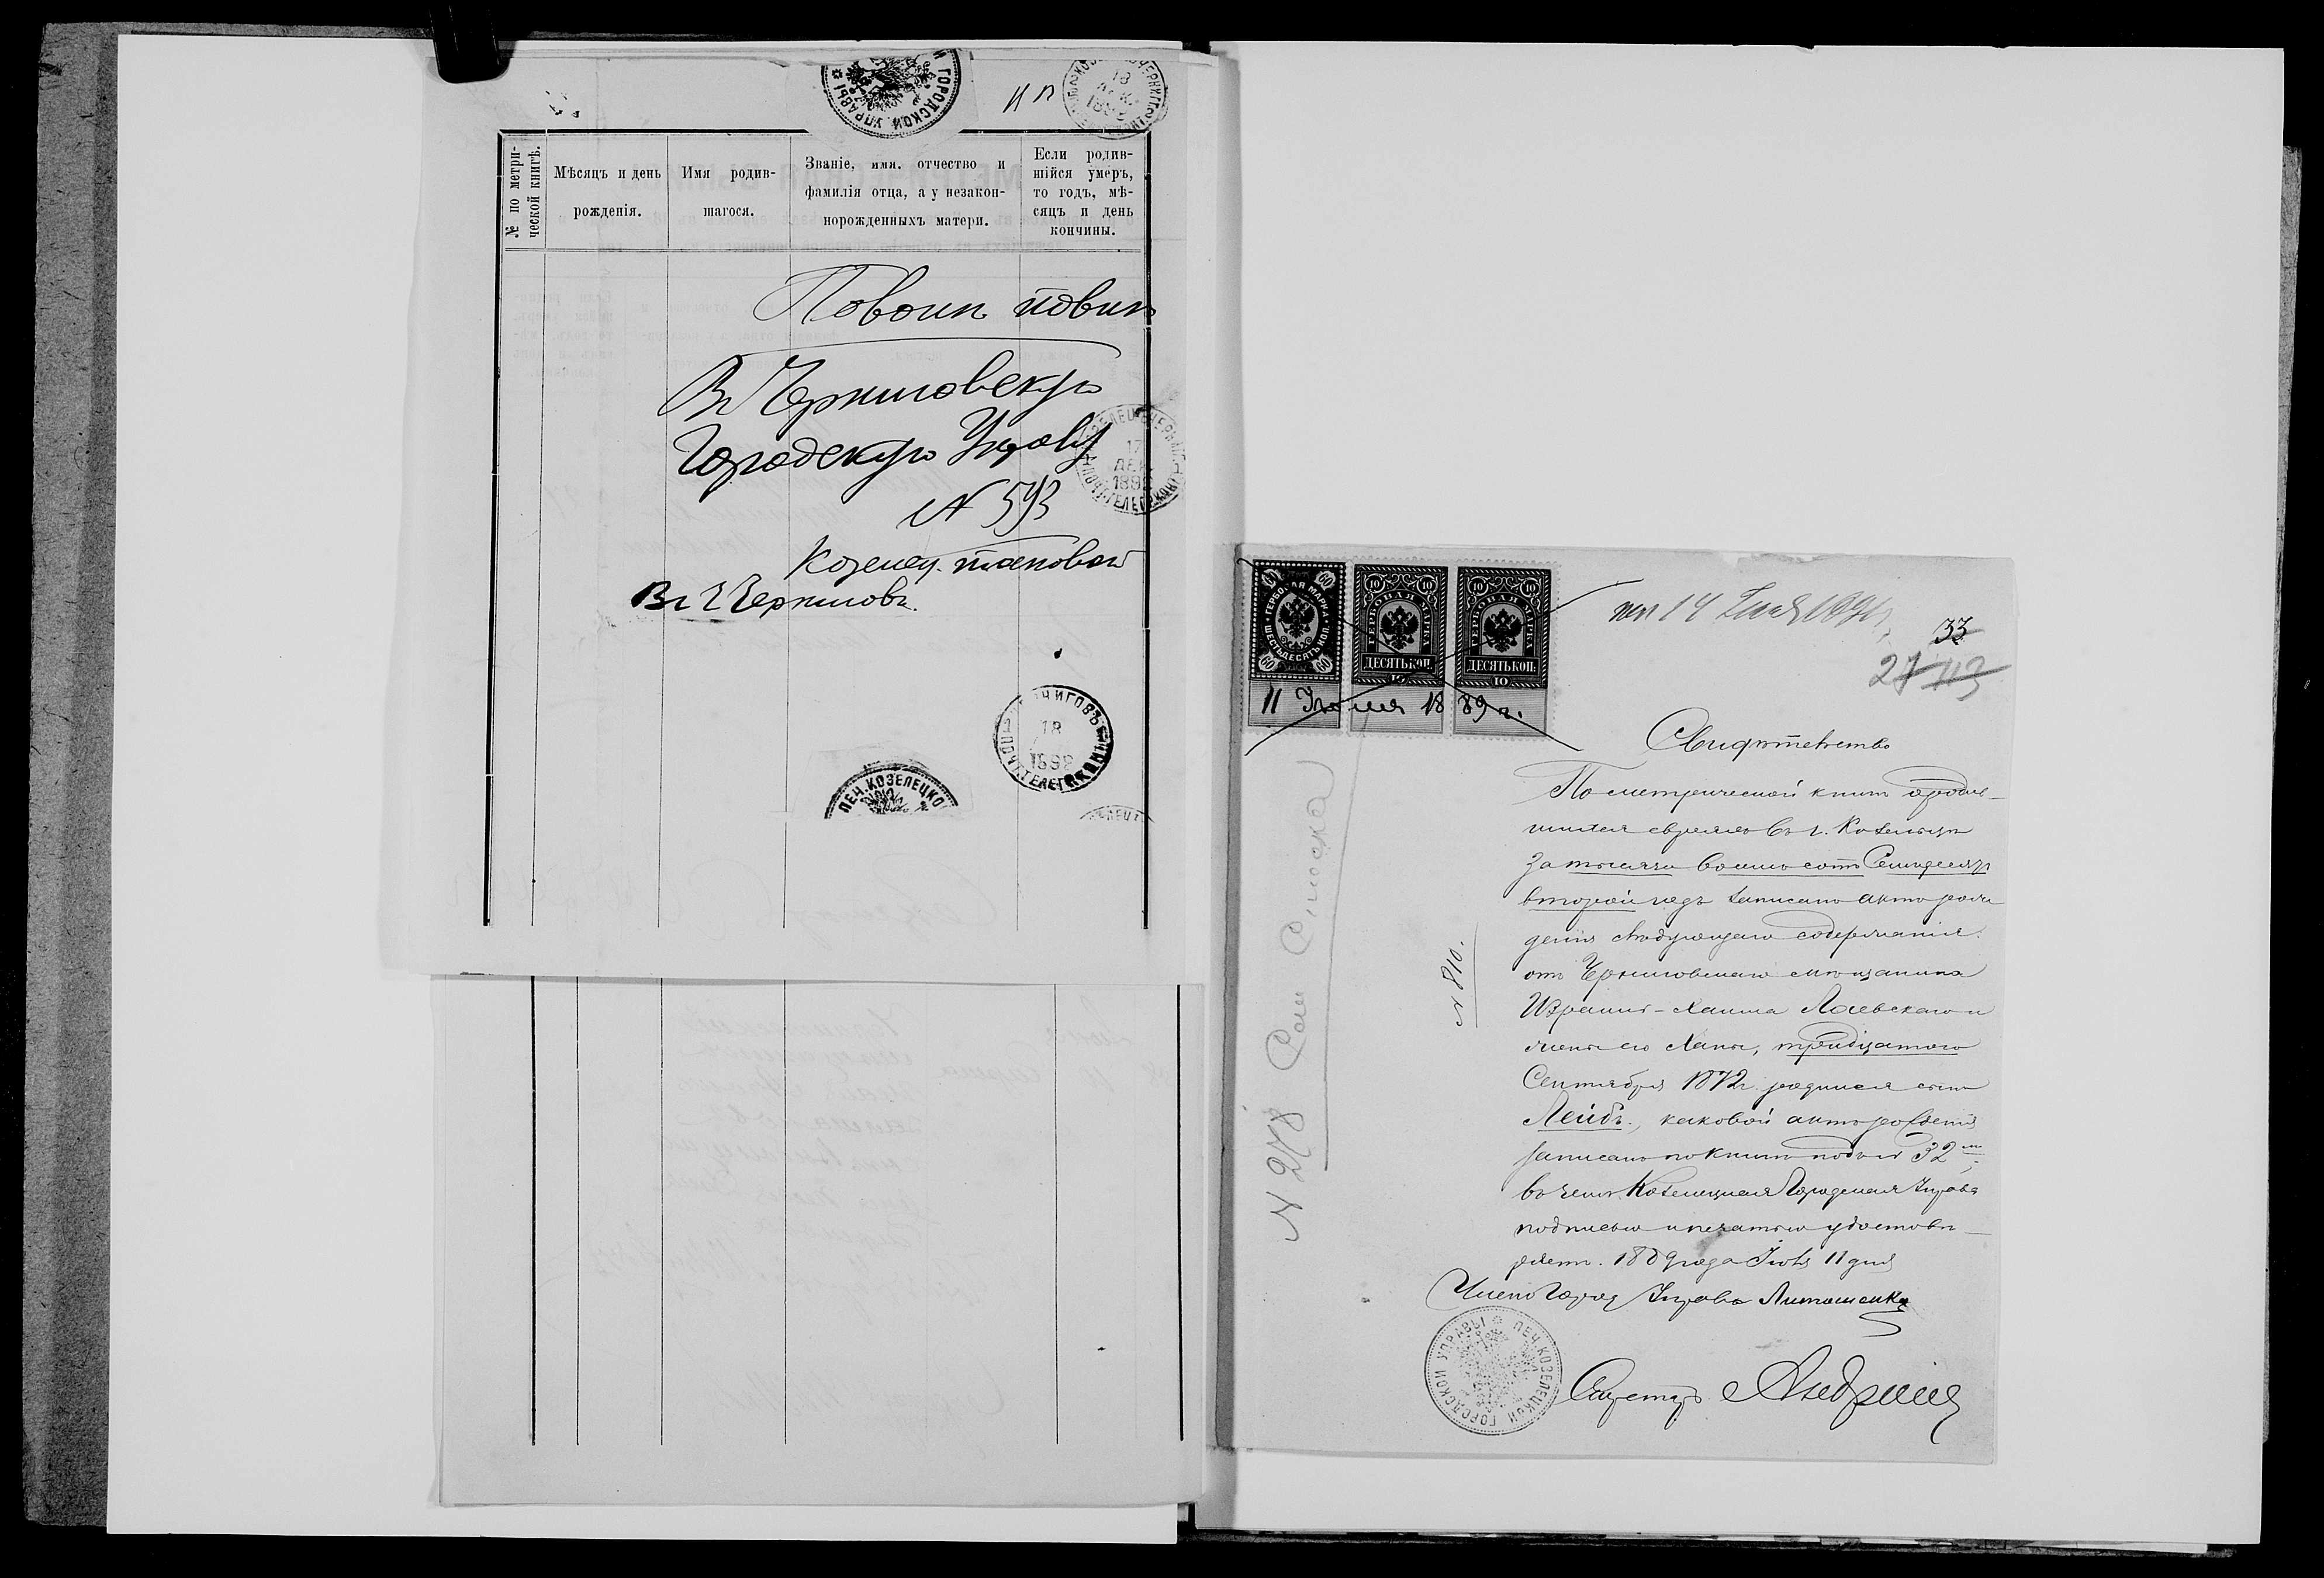 И ГОРОДСКОЙ УПРАВЫ
№ по метри-
ческой книгѣ.
Мѣсяцъ и день
рожденія.
Имя родив-
шагося.
Званіе, имя, отчество и
фамилія отца, а у незакон-
норожденныхъ матери.
Если родив-
шійся умеръ,
то годъ, мѣ-
сяцъ и день
кончины.
По воин повин
Въ Черниговскую
Городскую Управу
N 593
17
ДЕК
189
Козелец.
Въ г Черниговъ.
ЧИГОВЪ
18
1898
ПЕЧ. КОЗЕЛЕЦКО
ГЕРБОВАЯ МАРКА
ШЕСТЬДЕСЯТЪ КОП.
60 60
60 60
10 10
ГЕРБОВАЯ МАРКА
ДЕСЯТЬ КОП.
10
10 10
ГЕРБОВАЯ МАРКА
ДЕСЯТЬ КОП.
10
11 Іюля 1889 г.
33
27 113
N 278
N 810.
Свидѣтельство
По метрической книгѣ о родив-
шихся евреяхъ въ г. Козельцѣ
за тысяча восемь сотъ Семьдесятъ
второй годъ записанъ актъ рож
денія слѣдующаго содержанія:
отъ Черниговскаго мѣщанина
Израиля-Хаима Лаевскаго и
жены его Ханы, тридцатаго
Сентября 1872 г. родился сынъ
Лейбъ, каковой актъ рожденія
записанъ по книгѣ подъ № 32
въ чемъ Козелецкая Городская Управа
подписью и печатью удостовѣ-
ряетъ. 1889 года Іюля 11 дня
Членъ Город Управы
ПЕЧ. КОЗЕЛЕЦКОЙ ГОРОДСКОЙ УПРАВЫ
Секретарь